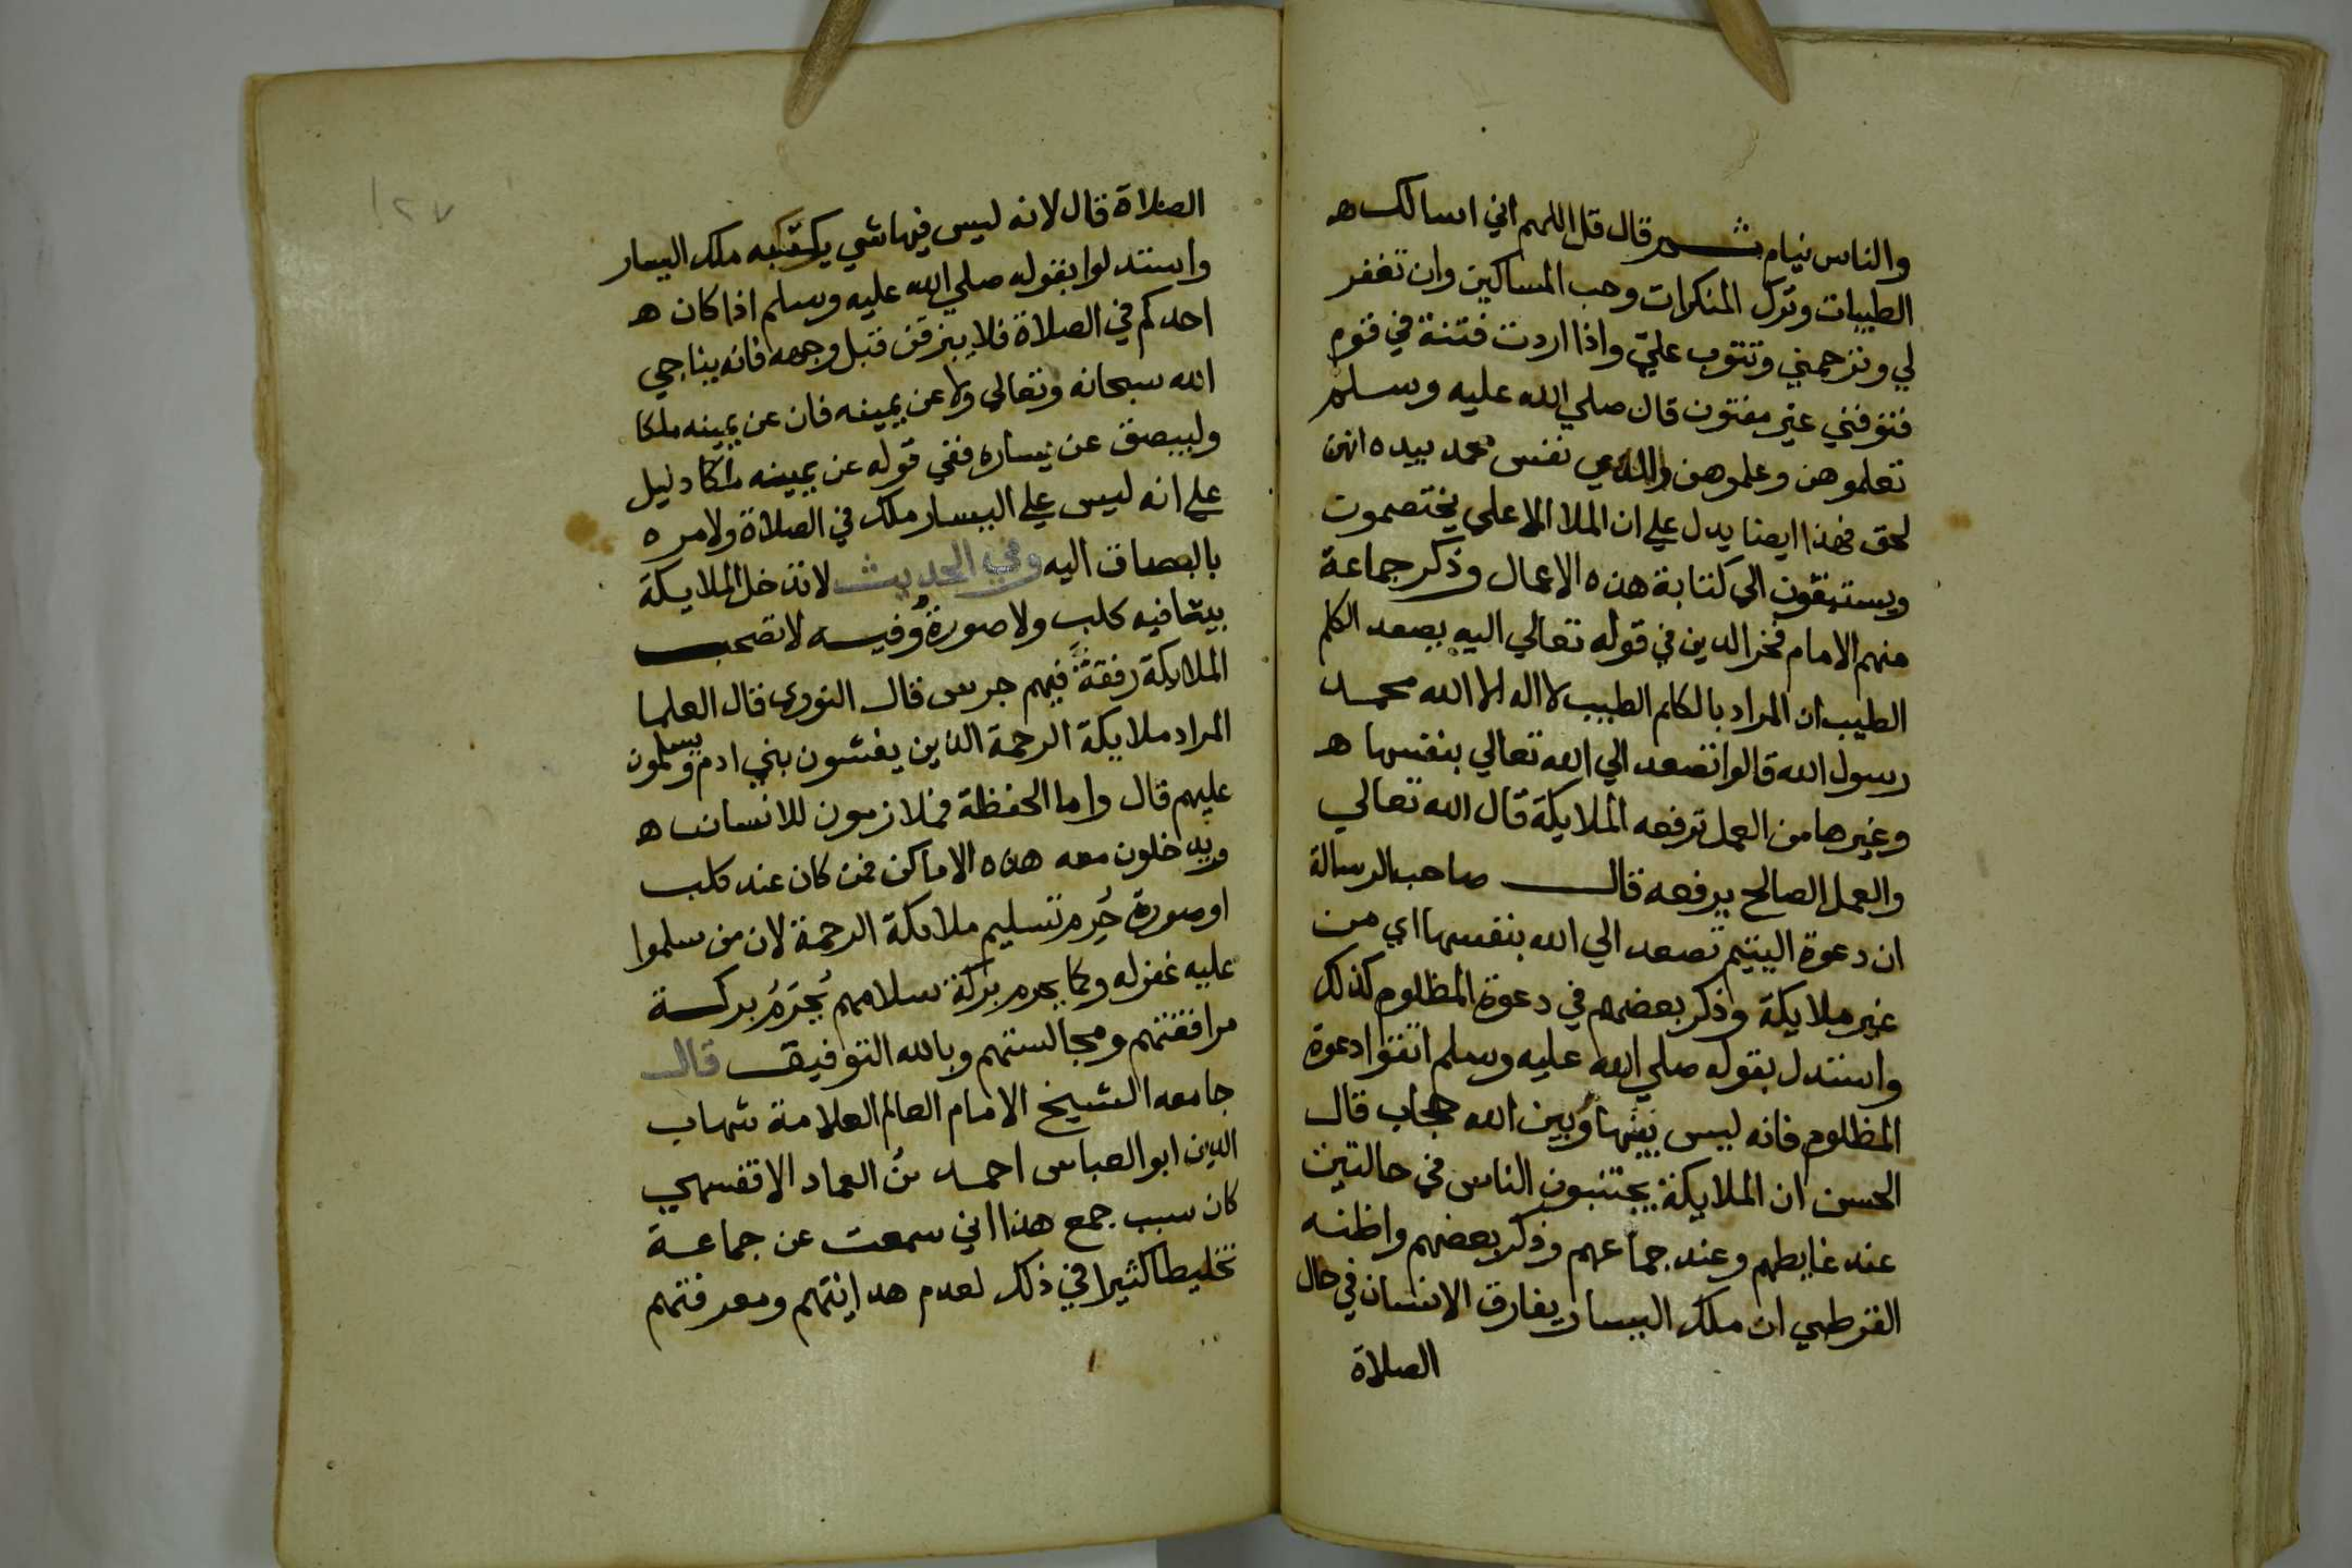 والناس نيام ثم قال قل اللهم اني اسالك ه
الطيبات وترك المنكرات وحب المساكين وان تغفر
لي وترحمني وتتوب علي واذا اردت فتنة في قوم
فتوفني غير مفتون قال صلي الله عليه وسلم
تعلموهن وعلموهن والذي نفس محمد بيده انهن
لحق فهذا ايضا يدل علي ان الملا الاعلي يختصموت
ويستبقون الي كتابة هذه الاعمال وذكر جماعة
منهم الامام فخر الدين في قوله تعالي اليه يصعد الكلم
الطيب ان المراد بالكلم الطيب لا اله الا الله محمد
رسول الله قالوا تصعد الي الله تعالي بنفسها ه
وغيرها من العمل ترفعه الملايكة قال الله تعالي
والعمل الصالح يرفعه قال صاحب الرسالة
ان دعوة اليتيم تصعد الي الله بنفسها اي من
غير ملايكة وذكر بعضهم في دعوة المظلوم كذلك
واستدل بقوله صلي الله عليه وسلم اتقوا دعوة
المظلوم فانه ليس بينها وبين الله حجاب قال
الحسن ان الملايكة يجتنبون الناس في حالتين
عند غايطهم وعند جماعهم وذكر بعضهم واظنه
القرطبي ان ملك اليسار يفارق الانسان في حال
الصلاة
١٢٧
الصلاة قال لانه ليس فيها شي يكتبه ملك اليسار
واستدلوا بقوله صلي الله عليه وسلم اذا كان ه
احدكم في الصلاة فلا يبزقن قبل وجهه فانه يناجي
الله سبحانه وتعالي ولا عن يمينه فان عن يمينه ملكا
وليبصق عن يساره ففي قوله عن يمينه ملكا دليل
علي انه ليس علي اليسار ملك في الصلاة ولامره
بالبصاق اليه وفي الحديث لا تدخل الملايكة
بيتا فيه كلب ولا صورة وفيه لا تصحب
الملايكة رفقة فيهم جرس قال النووي قال العلما
المراد ملايكة الرحمة الذين يغشون بني ادم ويسلمون
عليهم قال واما الحفظة فملازمون للانسان ه
ويدخلون معه هذه الاماكن فمن كان عند كلب
او صورة حرم تسليم ملايكة الرحمة لان من سلموا
عليه غفر له وكما يحرم بركة سلامهم يحرم بركة
مرافقتهم ومجالستهم وبالله التوفيق قال
جامعه الشيخ الامام العالم العلامة شهاب
الدين ابو العباس احمد بن العماد الاقفسهي
كان سبب جمع هذا اني سمعت عن جماعة
تخليطا كثيرا في ذلك لعدم هدايتهم ومعرفتهم